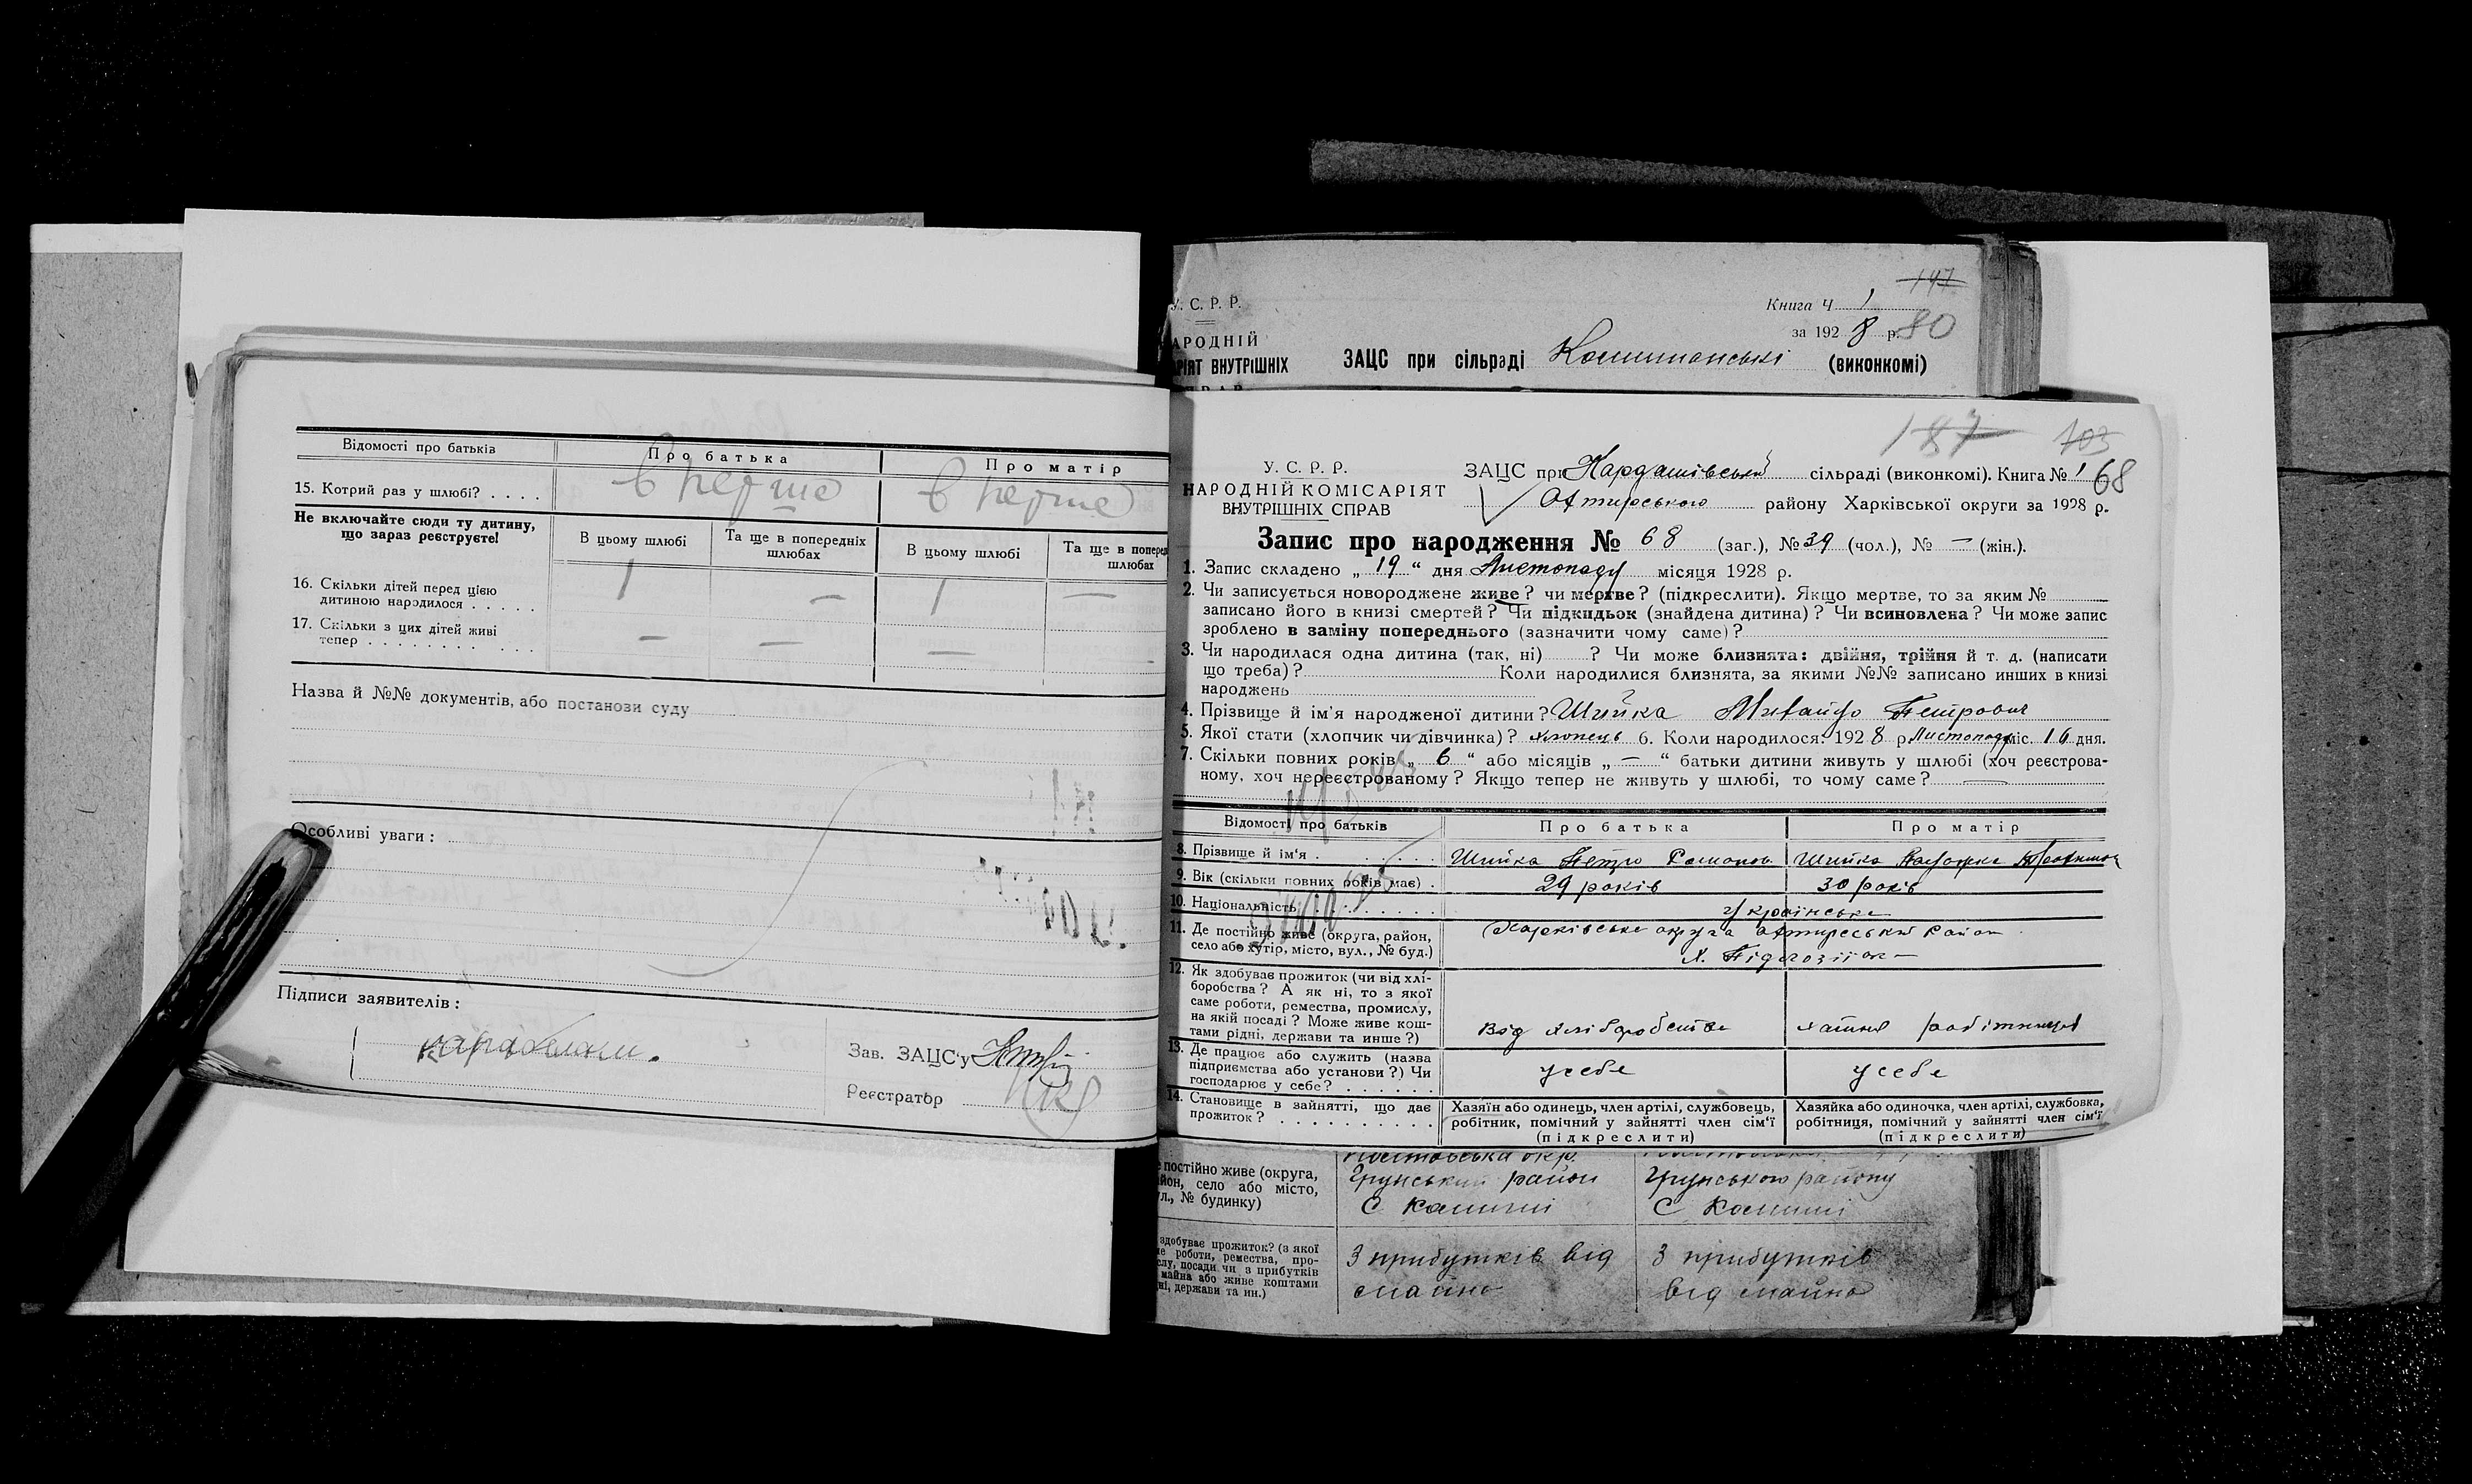 Відомості про батьків
Про батька
Про матір
15. Котрий раз у шлюбі? . . . .
вперше
вперше
Не включайте сюди ту дитину,
що зараз реєструєте!
В цьому шлюбі
Та ще в попередніх
шлюбах
В цьому шлюбі
Та ще в поперед
шлюбах
16. Скільки дітей перед цією
дитиною народилося . . . . .
1 — 1 —
17. Скільки з цих дітей живі
тепер . . . . . . . . . . .
— — —
Назва й №№ документів, або постанови суду
Особливі уваги :
Підписи заявителів :
Зав. ЗАЦС'у
Реєстратор
У. С. Р. Р.
АРОДНІЙ
РІЯТ ВНУТРІШНІХ
Книга Ч 1
147
за 1928 р. 80
ЗАЦС при сільраді (виконкомі)
187 103
У. С. Р. Р.
НАРОДНІЙ КОМІСАРІЯТ
ВНУТРІШНІХ СПРАВ
ЗАЦС при Кардашівській сільраді (виконкомі). Книга № 1 68
Охтирського району Харківської округи за 1928 р.
Запис про народження № 68 (заг.), № 39 (чол.), № — (жін.).
1. Запис складено „ 19 “ дня Листопаду місяця 1928 р.
2. Чи записується новороджене живе? чи мертве? (підкреслити). Якщо мертве, то за яким №
записано його в книзі смертей? Чи підкидьок (знайдена дитина)? Чи всиновлена? Чи може запис
зроблено в заміну попереднього (зазначити чому саме)?
3. Чи народилася одна дитина (так, ні) ? Чи може близнята: двійня, трійня й т. д. (написати
що треба)? Коли народилися близнята, за якими №№ записано инших в книзі
народжень
4. Прізвище й ім'я народженої дитини? Шийка Михайло Петрович
5. Якої стати (хлопчик чи дівчинка)? хлопець 6. Коли народилося: 1928 р. Листопаду міс. 16 дня.
7. Скільки повних років „ 6 “ або місяців „ — “ батьки дитини живуть у шлюбі (хоч реєстрова-
ному, хоч нереєстрованому? Якщо тепер не живуть у шлюбі, то чому саме? —
Відомості про батьків
Про батька
Про матір
8. Прізвище й ім'я . . . . . .
Шийка Петро Романов.
Шийка
9. Вік (скільки повних років має) .
29 років
30 років
10. Національність . . . . . . . .
Українське
11. Де постійно живе (округа, район,
село або хутір, місто, вул., № буд.)
Харківське округа Охтирський район
х. Підлозіїок
12. Як здобуває прожиток (чи від хлі-
боробства? А як ні, то з якої
саме роботи, ремества, промислу,
на якій посаді? Може живе кош-
тами рідні, держави та инше?)
Від хліборобства
хатня робітниця
13. Де працює або служить (назва
підприємства або установи?) Чи
господарює у себе? . . . . . .
у себе
у себе
14. Становище в зайнятті, що дає
прожиток? . . . . . . . . . .
Хазяїн або одинець, член артілі, службовець,
робітник, помічний у зайнятті член сім'ї
(підкреслити)
Хазяйка або одиночка, член артілі, службовка,
робітниця, помічний у зайнятті член сім'ї
(підкреслити)
постійно живе (округа,
йон, село або місто,
ул., № будинку)
Грунський район
С
Грунського району
С
здобуває прожиток? (з якої
е роботи, ремества, про-
слу, посади чи з прибутків
майна або живе коштами
ні, держави та ин.)
З прибутків від
майно
З прибутків
від майна